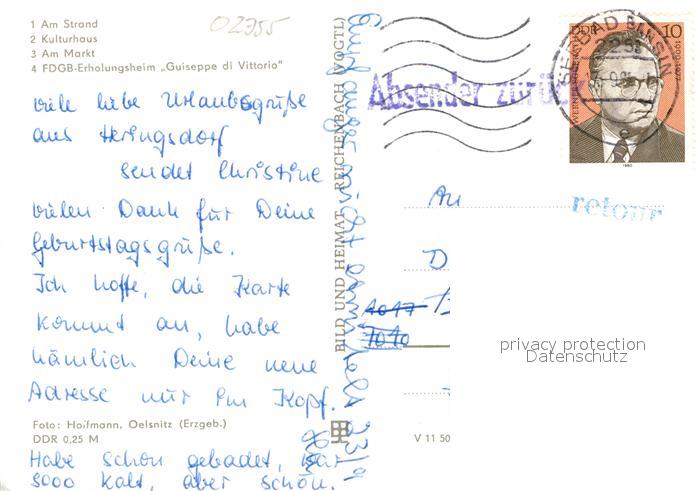 1 Am Strand
2 Kulturhaus
3 Am Markt
4 FDGB-Erholungsheim „Guiseppe di Vittorio"
02355
viele liebe Urlaubsgrüße
aus Heringsdorf
sendet Christine
vielen Dank für Deine
Geburtstagsgrüße.
Ich hoffe, die Karte
kommt an, habe
nämlich Deine neue
Adresse nur im Kopf.
Foto: Hoffmann, Oelsnitz (Erzgeb.)
DDR 0,25 M
Habe schon gebadet, war
sooo kalt, aber schön.
BILD UND HEIMAT REICHENBACH (VOGTL)
Empfänger nicht
Absender zurück
DDR 10
SEEBAD BANSIN
2255
1980
retour
An
D
1017
1010
V 11 50
privacy protection
Datenschutz